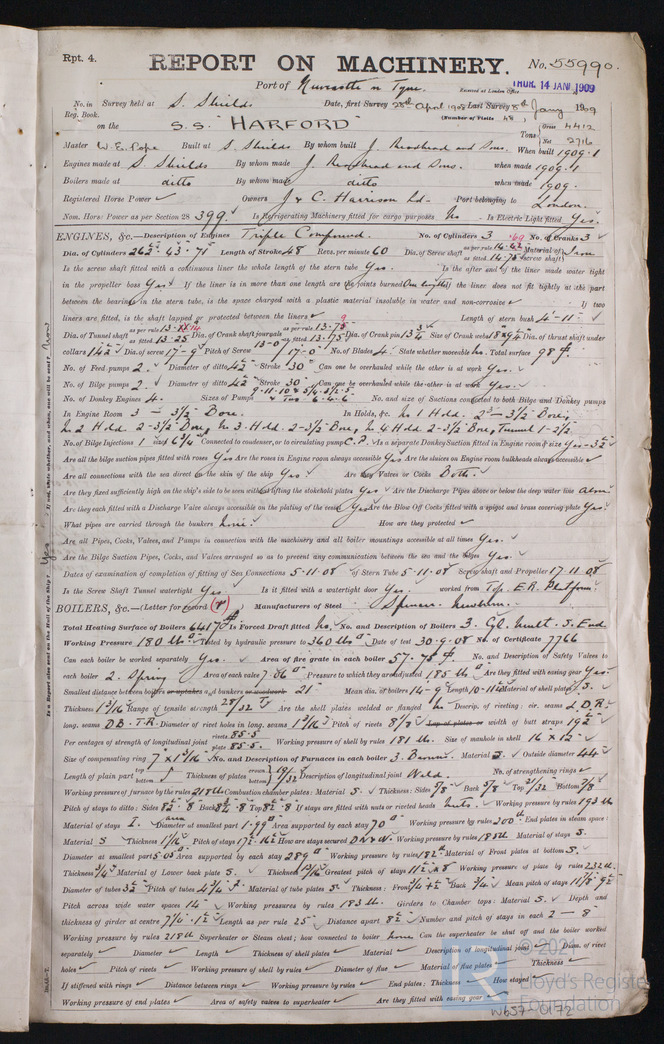 Rpt. 4.
REPORT ON MACHINERY. No. 55990.
Port of Newcastle n Tyne. Received at London Office THUR. 14 JAN. 1909
No. in Survey held at S. Shields Date, first Survey 28th April 1908 Last Survey 8th Jany 1909
Reg. Book. (Number of Visits 48)
on the S.S. "HARFORD" Tons Gross 4412 Net 2716
Master W. E. Pope Built at S. Shields By whom built J. Readhead and Sons. When built 1909.1
Engines made at S. Shields By whom made J. Readhead and Sons. when made 1909.1
Boilers made at ditto By whom made ditto when made 1909.
Registered Horse Power Owners J & C. Harrison Ld. Port belonging to London.
Nom. Horse Power as per Section 28 399. Is Refrigerating Machinery fitted for cargo purposes No. Is Electric Light fitted Yes.
ENGINES, &c.—Description of Engines Triple Compound. No. of Cylinders 3 No. of Cranks 3
Dia. of Cylinders Length of Stroke 48 Revs. per minute 60 Dia. of Screw shaft as per rule as fitted Material of screw shaft
Is the screw shaft fitted with a continuous liner the whole length of the stern tube Yes. Is the after end of the liner made water tight
in the propeller boss Yes If the liner is in more than one length are the joints burned One length If the liner does not fit tightly at the part
between the bearings in the stern tube, is the space charged with a plastic material insoluble in water and non-corrosive If two
liners are fitted, is the shaft lapped or protected between the liners Length of stern bush 4'-11"
Dia. of Tunnel shaft as per rule as fitted 13.25 Dia. of Crank shaft journals as per rule as fitted Dia. of Crank pin Size of Crank webs Dia. of thrust shaft under
collars 14½ Dia. of screw 17-9 Pitch of Screw 17-0 No. of Blades 4 State whether moveable No. Total surface 98
No. of Feed pumps 2. Diameter of ditto 4½ Stroke 30" Can one be overhauled while the other is at work Yes.
No. of Bilge pumps 2. Diameter of ditto 4½ Stroke 30" Can one be overhauled while the other is at work Yes.
No. of Donkey Engines 4. Sizes of Pumps No. and size of Suctions connected to both Bilge and Donkey pumps
In Engine Room 3 — 3½" Bore. In Holds, &c. In 1 Hold. 2"-3½" Bore,
In 2 Hold 2-3½" Bore, In 3 Hold. 2-3½" Bore, In 4 Hold 2-3½" Bore, Tunnel 1-2½.
No. of Bilge Injections 1 sizes 6¾ Connected to condenser, or to circulating pump C.P. Is a separate Donkey Suction fitted in Engine room & size Yes-3½
Are all the bilge suction pipes fitted with roses Yes Are the roses in Engine room always accessible Yes Are the sluices on Engine room bulkheads always accessible
Are all connections with the sea direct on the skin of the ship Yes. Are they Valves or Cocks Both.
Are they fixed sufficiently high on the ship's side to be seen without lifting the stokehold plates Yes Are the Discharge Pipes above or below the deep water line Above
Are they each fitted with a Discharge Valve always accessible on the plating of the vessel Yes Are the Blow Off Cocks fitted with a spigot and brass covering plate Yes
What pipes are carried through the bunkers None How are they protected
Are all Pipes, Cocks, Valves, and Pumps in connection with the machinery and all boiler mountings accessible at all times Yes.
Are the Bilge Suction Pipes, Cocks, and Valves arranged so as to prevent any communication between the sea and the bilges Yes.
Dates of examination of completion of fitting of Sea Connections 5-11-08 of Stern Tube 5-11-08 Screw shaft and Propeller 17-11-08
Is the Screw Shaft Tunnel watertight Yes. Is it fitted with a watertight door Yes. worked from Top E.R. Platform.
BOILERS, &c.—(Letter for record (r)) Manufacturers of Steel Spencer. Newburn.
Total Heating Surface of Boilers 6417 Is Forced Draft fitted No. No. and Description of Boilers 3. Cyl. Mult. S. End
Working Pressure 180 lbs Tested by hydraulic pressure to 360 lbs Date of test 30-9-08 No. of Certificate 7766
Can each boiler be worked separately Yes. Area of fire grate in each boiler 57.75 No. and Description of Safety Valves to
each boiler 2. Spring Area of each valve 7.06 Pressure to which they are adjusted 185 lbs Are they fitted with easing gear Yes
Smallest distance between boilers or uptakes and bunkers or woodwork 21" Mean dia. of boilers 14-9 Length 10-11 Material of shell plates S.
Thickness 1 3/16 Range of tensile strength 28/32 Are the shell plates welded or flanged No Descrip. of riveting: cir. seams L.D.R.
long. seams D.B.T.R. Diameter of rivet holes in long. seams 1 3/16 Pitch of rivets 8 1/8 Lap of plates or width of butt straps 19½
Per centages of strength of longitudinal joint rivets 85.5 plate 85.5 Working pressure of shell by rules 181 lbs. Size of manhole in shell 16" x 12"
Size of compensating ring 7" x 1 3/16 No. and Description of Furnaces in each boiler 3. Material S Outside diameter 44
Length of plain part top bottom Thickness of plates crown bottom 19/32 Description of longitudinal joint Weld. No. of strengthening rings
Working pressure of furnace by the rules 218 lb Combustion chamber plates: Material S Thickness: Sides 5/8 Back 5/8 Top 21/32 Bottom 7/8
Pitch of stays to ditto: Sides Back Top If stays are fitted with nuts or riveted heads Nuts. Working pressure by rules 193 lb
Material of stays I. Diameter at smallest part 1.99 Area supported by each stay 70 Working pressure by rules 200 lb End plates in steam space:
Material S Thickness Pitch of stays How are stays secured D.N & W. Working pressure by rules 185 lb Material of stays S.
Diameter at smallest part 5.03 Area supported by each stay 289 Working pressure by rules 182 lb Material of Front plates at bottom S.
Thickness 3/4 Material of Lower back plate S Thickness 13/16 Greatest pitch of stays Working pressure of plate by rules 232 lb
Diameter of tubes 3½ Pitch of tubes Material of tube plates S Thickness: Front Back 3/4 Mean pitch of stays
Pitch across wide water spaces 14" Working pressures by rules 183 lb. Girders to Chamber tops: Material S. Depth and
thickness of girder at centre Length as per rule 25" Distance apart 8½ Number and pitch of stays in each 2 — 8"
Working pressure by rules 218 lb Superheater or Steam chest; how connected to boiler None Can the superheater be shut off and the boiler worked
separately Diameter Length Thickness of shell plates Material Description of longitudinal joint Diam. of rivet
holes Pitch of rivets Working pressure of shell by rules Diameter of flue Material of flue plates Thickness
If stiffened with rings Distance between rings Working pressure by rules End plates: Thickness How stayed
Working pressure of end plates Area of safety valves to superheater Are they fitted with easing gear
© 2021
Lloyd's Register
Foundation
W657-0172